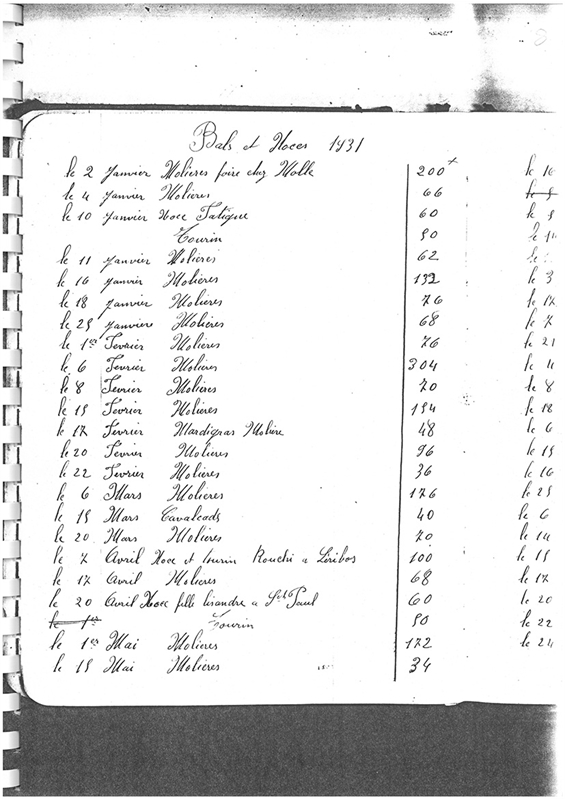 Bals et Noces 1931
le 2 Janvier Molières foire chez Molle 200 +
le 4 Janvier Molières 66
le 10 Janvier Noce Fatigue 60
Tourin 50
le 11 Janvier Molières 62
le 16 Janvier Molières 132
le 18 Janvier Molières 76
le 25 Janvier Molières 68
le 1er Fevrier Molières 76
le 6 Fevrier Molières 304
le 8 Fevrier Molières 70
le 15 Fevrier Molières 154
le 17 Fevrier Mardigras Molière 48
le 20 Fevrier Molières 96
le 22 Fevrier Molières 36
le 6 Mars Molières 176
le 15 Mars Cavalcads 40
le 20 Mars Molières 70
le 7 Avril Noce et tourin a 100
le 17 Avril Molieres 68
le 20 Avril Noce fille lisandre a St Paul 60
le 1er Tourin 50
le 1er Mai Molieres 172
le 15 Mai Molieres 34
le 16
le 9
le 9
le 14
le
le 3
le 17
le 7
le 21
le 4
le 8
le 18
le 6
le 15
le 16
le 25
le 6
le 14
le 15
le 17
le 20
le 22
le 24